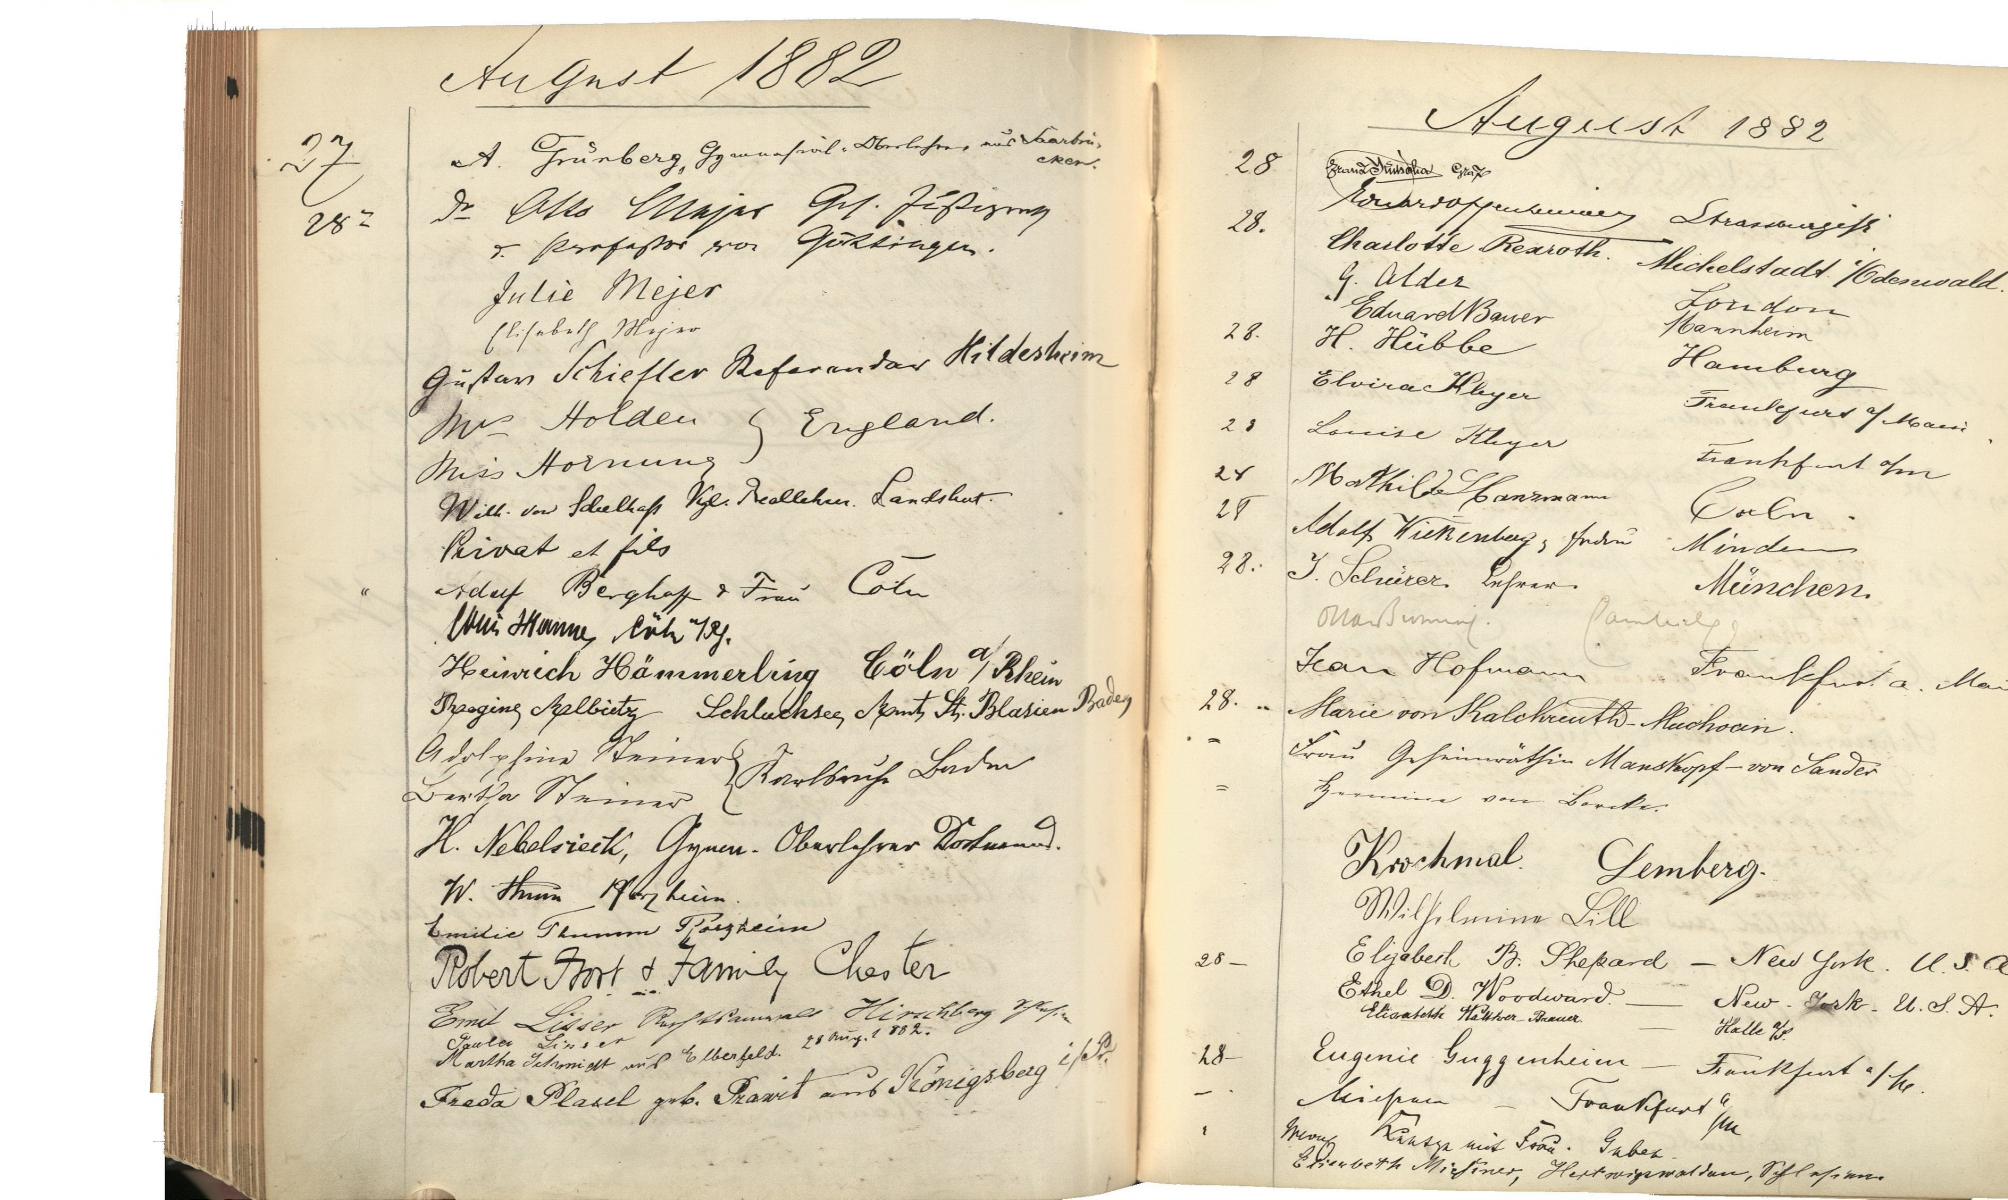 August 1882
27
A. Grünberg, Gymnasial-Oberlehrer aus Saarbrü-
cken.
28
Dr Otto Mejer Geh. Justizrath
u. Professor von Göttingen.
Julie Mejer
Elisabeth Mejer
Gustav Schiefler Referendar Hildesheim
Mrs Holden } England.
Miss Hornung
Wilh. von Schelhass Kgl. Reallehrer. Landshut.
Privat et fils
" Adolf Berghoff & Frau Cöln
Heinrich Hämmerling Cöln a/Rhein
Schluchsee, Amt St. Blasien Baden
Adolphine Steiner } Karlsruhe Baden
Bertha Steiner
H. Nebelsieck, Gymn. Oberlehrer Dortmund.
W. Thumm Pforzheim.
Emilie Thumm Pforzheim
Robert Frost & Family Chester
Emil Lisser Rechtsanwalt Hirschberg Schlesien
Paula Lisser
Martha Schmidt aus Elberfeld. 28 Aug. 1882.
Freda Plasel geb. Prawit aus Königsberg i/Pr.
August 1882
28 Graf
28. Charlotte Rexroth. Michelstadt i/Odenwald.
G. Alder London
Eduard Bauer Mannheim
28. H. Hübbe Hamburg
28 Elvira Kleyer Frankfurt a/Main
28 Louise Kleyer Frankfurt a/M
28 Mathilde Coeln.
28 Adolf Wiekenberg, Minden
28. J. Schürer Lehrer. München.
Jean Hofmann Frankfurt a. Main
28. " Marie von Kalckreuth-Machwin.
= Frau Geheimräthin Manskopf-von Sander
= Hermine von Borcke.
Krochmal. Lemberg.
Wilhelmine Lill
28 - Elizabeth B. Shepard - New York. U.S.A
Ethel D. Woodward. - New-York-U.S.A.
Elisabeth Halle a/S.
28- Eugenie Guggenheim - Frankfurt a/M.
- - Frankfurt a/M
mit Frau. Guben
Elisabeth Schlesien